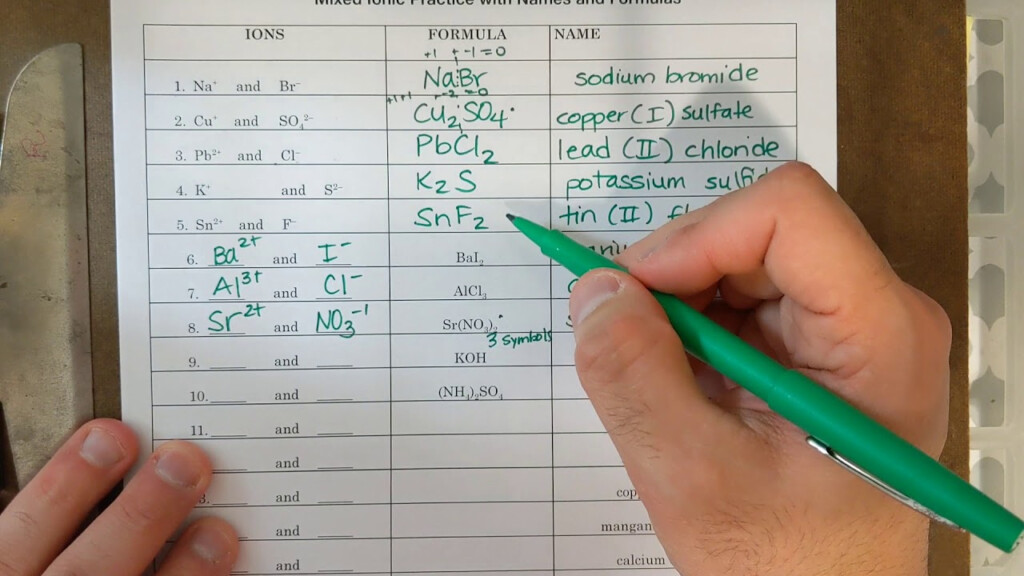 Mixed Ionic Practice with Names and Formulas
IONS FORMULA NAME
+1 + -1 = 0
1. Na⁺ and Br⁻ NaBr sodium bromide
+1+1 + -2 = 0
2. Cu⁺ and SO₄²⁻ Cu₂SO₄ copper (I) sulfate
3. Pb²⁺ and Cl⁻ PbCl₂ lead (II) chloride
4. K⁺ and S²⁻ K₂S potassium
5. Sn²⁺ and F⁻ SnF₂ tin (II)
6. Ba²⁺ and I⁻ BaI₂
7. Al³⁺ and Cl⁻ AlCl₃
8. Sr²⁺ and NO₃⁻¹ Sr(NO₃)₂
3 symbols
9. ____ and ____ KOH
10. ____ and ____ (NH₄)₂SO₄
11. ____ and ____
____ and ____
3. ____ and ____
____ and ____
____ and ____ calcium